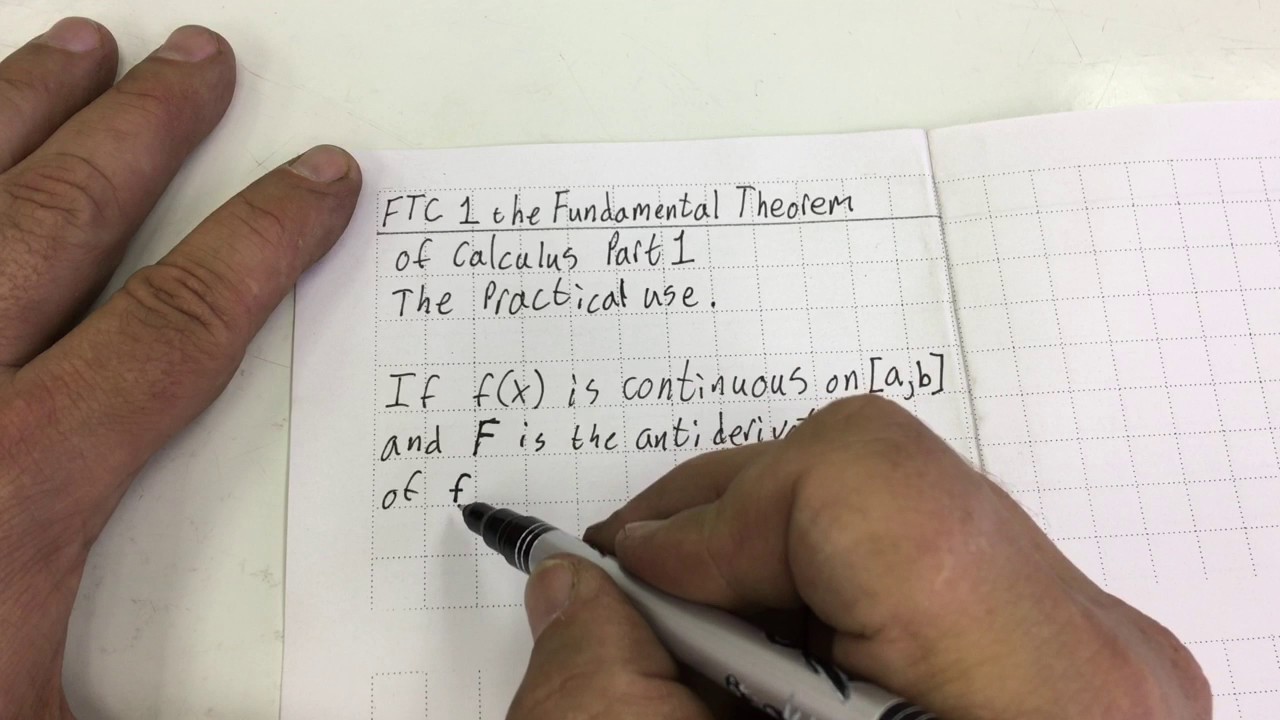 FTC 1 the Fundamental Theorem
of Calculus Part 1
The Practical use.
If f(x) is continuous on [a,b]
and F is the anti
of f